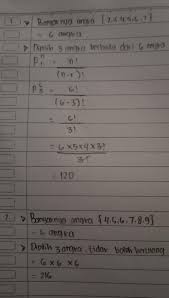 1. > Banyaknya angka {2,3,4,5,6,7}
= 6 angka
> Dipilih 3 angka berbeda dari 6 angka
P n r = n!
(n-r)!
P 6 3 = 6!
(6-3)!
= 6!
3!
= 6 x 5 x 4 x 3!
3!
= 120
2. > Banyaknya angka {4,5,6,7,8,9}
= 6 angka
> Dipilih 3 angka, tidak boleh berulang
= 6 x 6 x 6
= 216